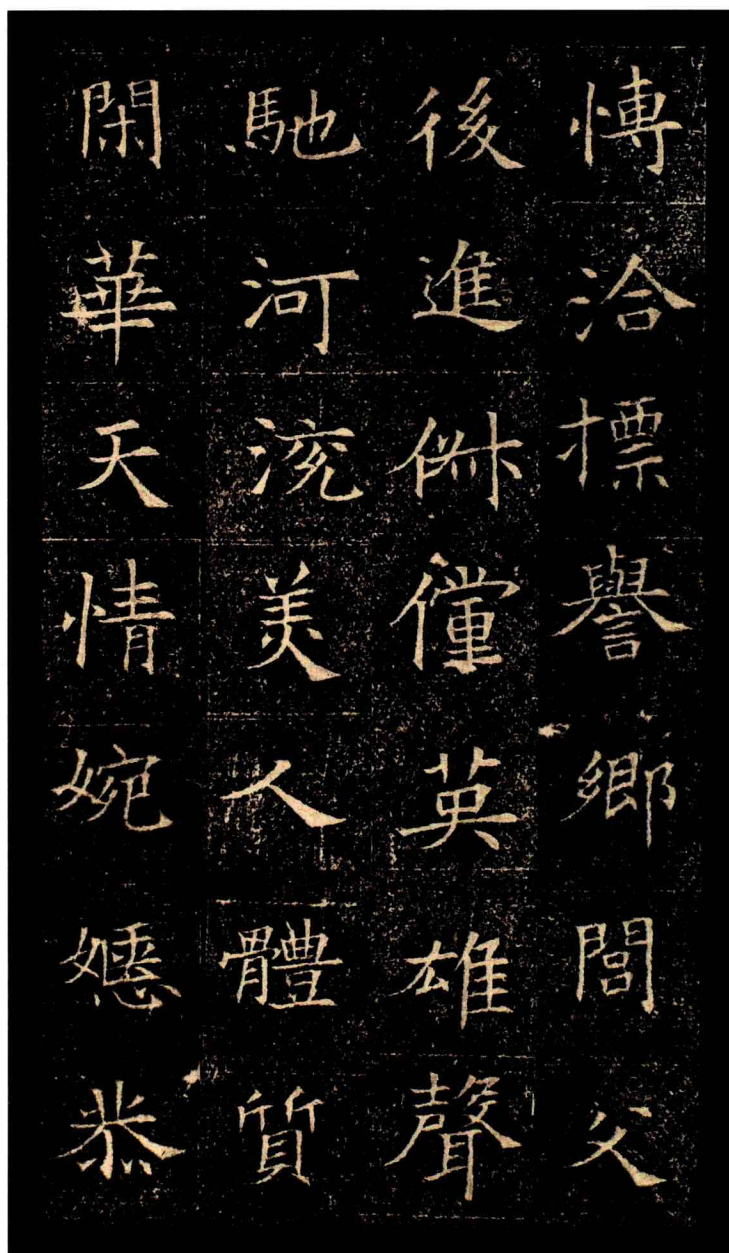 愽洽摽譽鄉閭父
後進俶儻英雄聲
馳河渷美人體質
閑華天情婉嫕恭